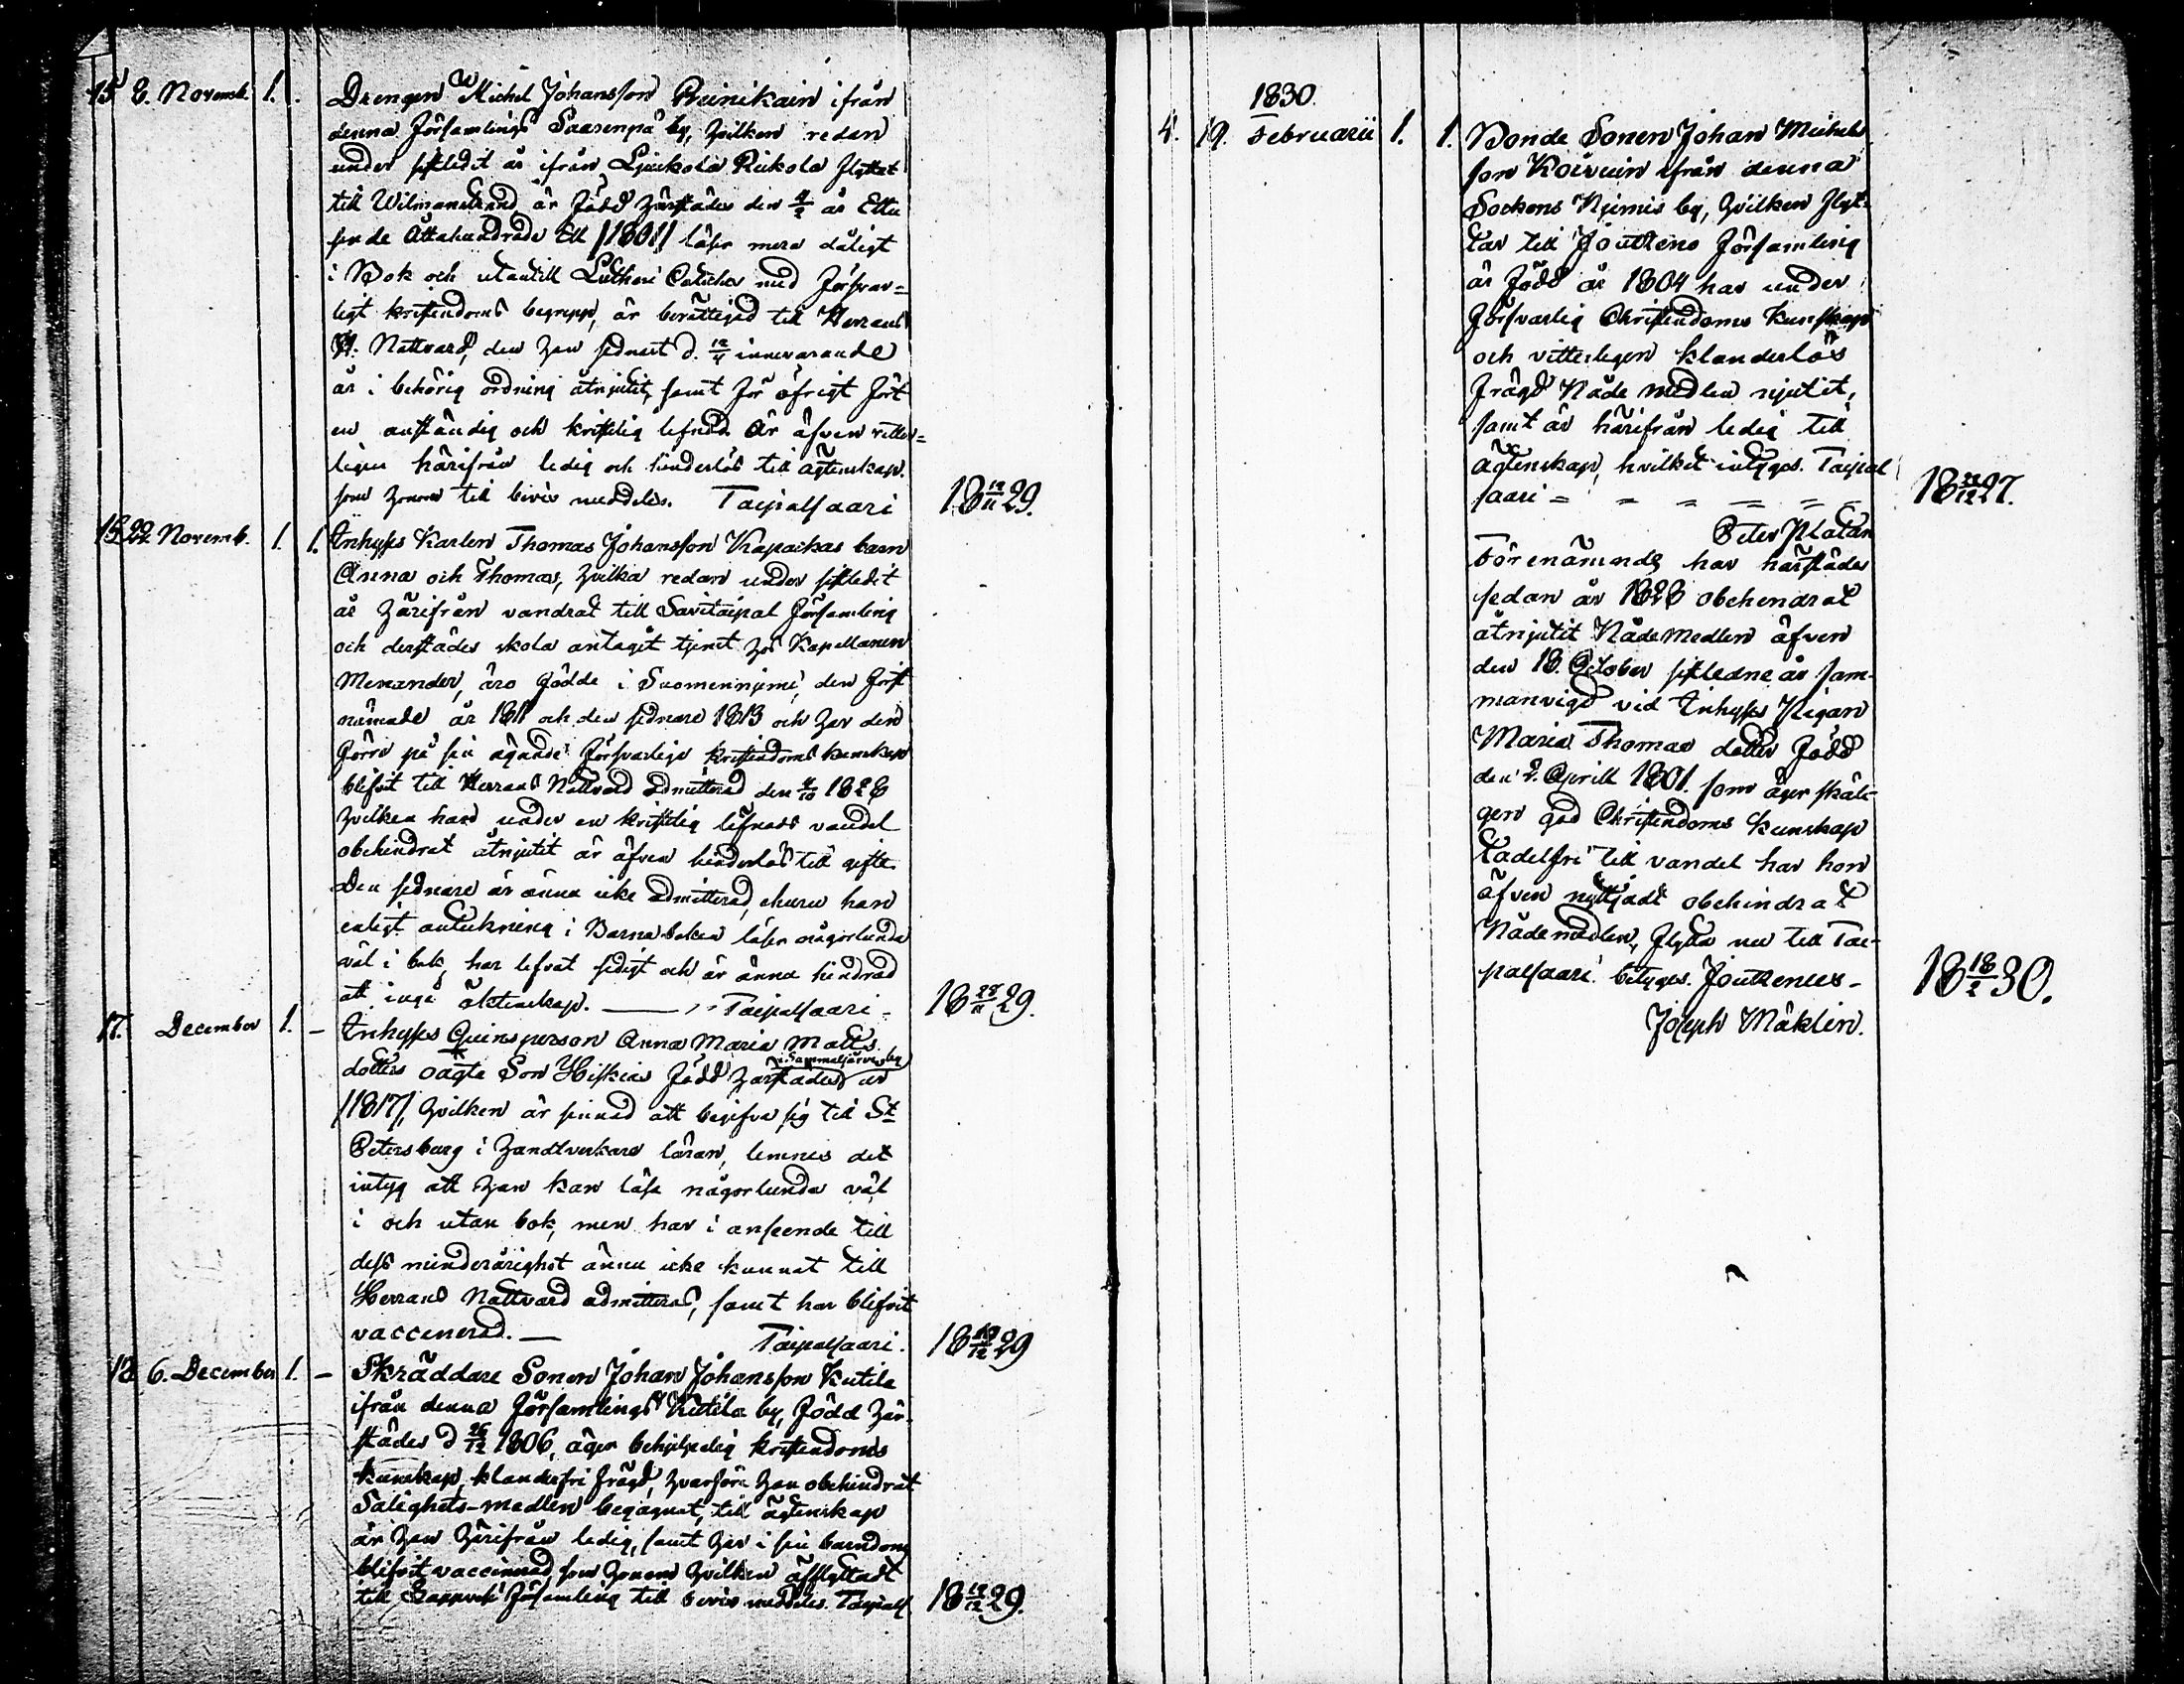 15 8. Novemb. 1. Drengen Michel Johansson Reinikain ifrån
denna Församlings Saarenpä by, hvilken redan
under sistledit år ifrån Kuckola Reikola flyttat
till Wilmanstrand är född härstädes den år Ettu
sende Åttahundrade Ett /1801/ läser mera dåligt
i Bok och utantill Lutheri Cateches med försvar=
ligt kristendoms begrepp, är berättigad till Herrans
H. Nattvard, den han sednast d. innevarande
år i behörig ordning åtnjutit, samt för öfrigt fört
en anständig och kristelig lefnad. Är äfven vitter=
ligen härifrån ledig och hinderlös till ägtenskap.
som honom till bevis meddeles. Taipalsaari 18 19/11 29.
22 Novemb. 1. 1. Inhyses Karlen Thomas Johansson Kapaikas barn
Anna och Thomas, hvilka redan under sistledit
år härifrån vandrat till Savitaipal Församling
och derstädes skola antagit tjenst hos Kapellanen
Menander, äro födde i Suomenniemi, den först
nämnde år 1811 och den sednare 1813 och har den
förre på sin ägande försvarliga kristendoms kunskap
blifvit till Herrans Nattvard admitterad den 1828
hvilken hand under en kristelig lefnads vandel
obehindrat åtnjutit är äfven hinderlös till gifte.
Den sednare är ännu icke admitterad, ehuru han
enligt anteckning i Barnaboken läser någorlunda
väl i bok, har lefvat sedigt och är ännu hindrad
att ingå äktenskap. — Taipalsaari - 18 28/11 29.
17. December 1. - Inhyses Qvinsperson Anna Maria Matts
dotters oägta Son Hiskias född härstädes i Sammaljärvi by år
/1817/, hvilken är sinnad att begifva sig till St
Petersburg i handtverkare läran, lemnes det
intyg att han kan läsa någorlunda väl
i och utan bok, men har i anseende till
dess minderårighet ännu icke kunnat till
Herrans Nattvard admitteras, samt har blifvit
vaccinerad. — Taipalsaari. 18 19/12 29
18 6. December 1. - Skräddare Sonen Johan Johansson Kutila
ifrån denna Församlings Kutila by, född här-
städes d 26/12 1806, äger behjelpelig kristendoms
kunskap, klanderfri frägd, hvarföre han obehindrat
Salighets-medlen begagnat, till ägtenskap
är han härifrån ledig, samt har i sin barndom
blifvit vaccinerad, som honom hvilken afflyttadt
till Församling till bevis meddeles. Taipals 18 19/12 29.
1830.
4. 19. Februarii 1. 1. Bonde Sonen Johan Michels
son Koivuin ifrån denna
Sockens Niemis by, hvilken flyt-
tar till Joutseno Församling
är född år 1804 har under
försvarlig Christendoms Kunskap
och vitterligen klanderlös
frägd Nåde medlen njutit,
samt är härifrån ledig till
ägtenskap, hvilket intyges. Taipal
saari = = = = = = 18 27.
Peter Platan
Förenämnde har härstädes
sedan år 1828 obehindrat
åtnjutit Nådemedlen äfven
den 18. October sistledne år sam-
manvigd vid Inhyses Pigan
Maria Thomas dotter född
den 2. Aprill 1801. som äger skäli-
gen god Christendoms kunskap
tadelfri till vandel har hon
äfven nyttjadt obehindrat
Nådemedlen, flytta nu till Tai-
palsaari. betyges. Joutsenus - 18 18/2 30.
Joseph Mäklin.